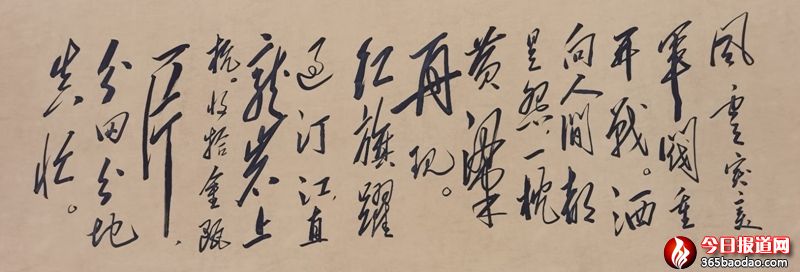 風雲突变
軍閥重
开戰。洒
向人間都
是怨，一枕
黄粱
再现。
红旗躍
过汀江，直
龍岩上
杭。收拾金瓯
一片，
分田分地
真忙。
今日报道网
365baodao.com